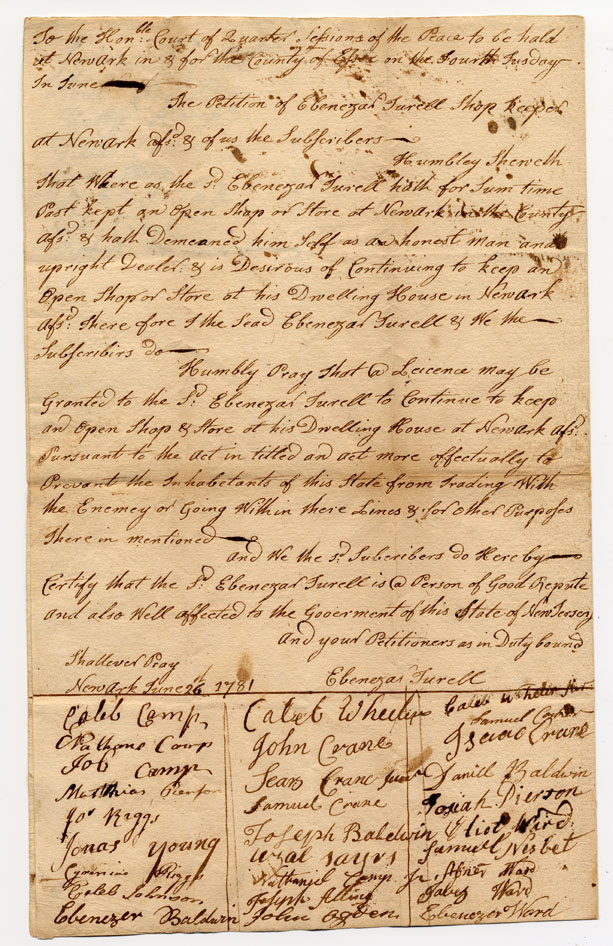 To the Hon.ble Court of Quarter Sessions of the Peace to be hald
at Newark in & for the County of Essex on the Fourth Tusday
In June
The Petition of Ebenezar Turell Shop keeper
at Newark afs.d & of us the Subscribers
Humbley Sheweth
That Where as the s.d Ebenezar Turell hath for Sum time
Past kept an Open Shop or Store at Newark in the County
afs.d & hath Demeaned him Self as an honest man and
upright Dealer & is Desirous of Continuing to keep an
Open Shop or Store at his Dwelling House in Newark
Afs.d There fore I the Sead Ebenezar Turell & We the
Subscribirs do
Humbly Pray That a Leicence may be
Granted to the S.d Ebenezar Turell to Continue to keep
an Open Shop & Store at his Dwelling House at Newark afs.d
Pursuant to the act in titled an act more effectually to
Prevant the Inhabetants of this State from Trading With
the Enemey or Going Within there Lines & for other Purposes
there in mentioned
and We the s.d Subcribers do Hereby
Certify that the S.d Ebenezar Turell is a Person of Good Repute
and also Well affected to the Gooerment of this State of New Jersey
And your Petitioners as in Duty bound
Shall ever Pray
Newark June 26th 1781
Ebenezar Turell
Caleb Camp
Nathanel Camp
Job Camp
Matthias Pierson
Jos Riggs
Jonas Young
Riggs
Caleb Johnson
Ebenezer Baldwin
Caleb Wheeler
John Crane
Sears Crane
Samuel Crane
Joseph Baldwin
Uzal Sayrs
Nathaniel Camp Jr
Joseph Alling
John Ogden
Caleb Wheeler
Samuel
Isaac Crane
Daniel Baldwin
Josiah Pierson
Eliot Ward
Samuel Nisbet
Abner Ward
Jabez Ward
Ebenezer Ward